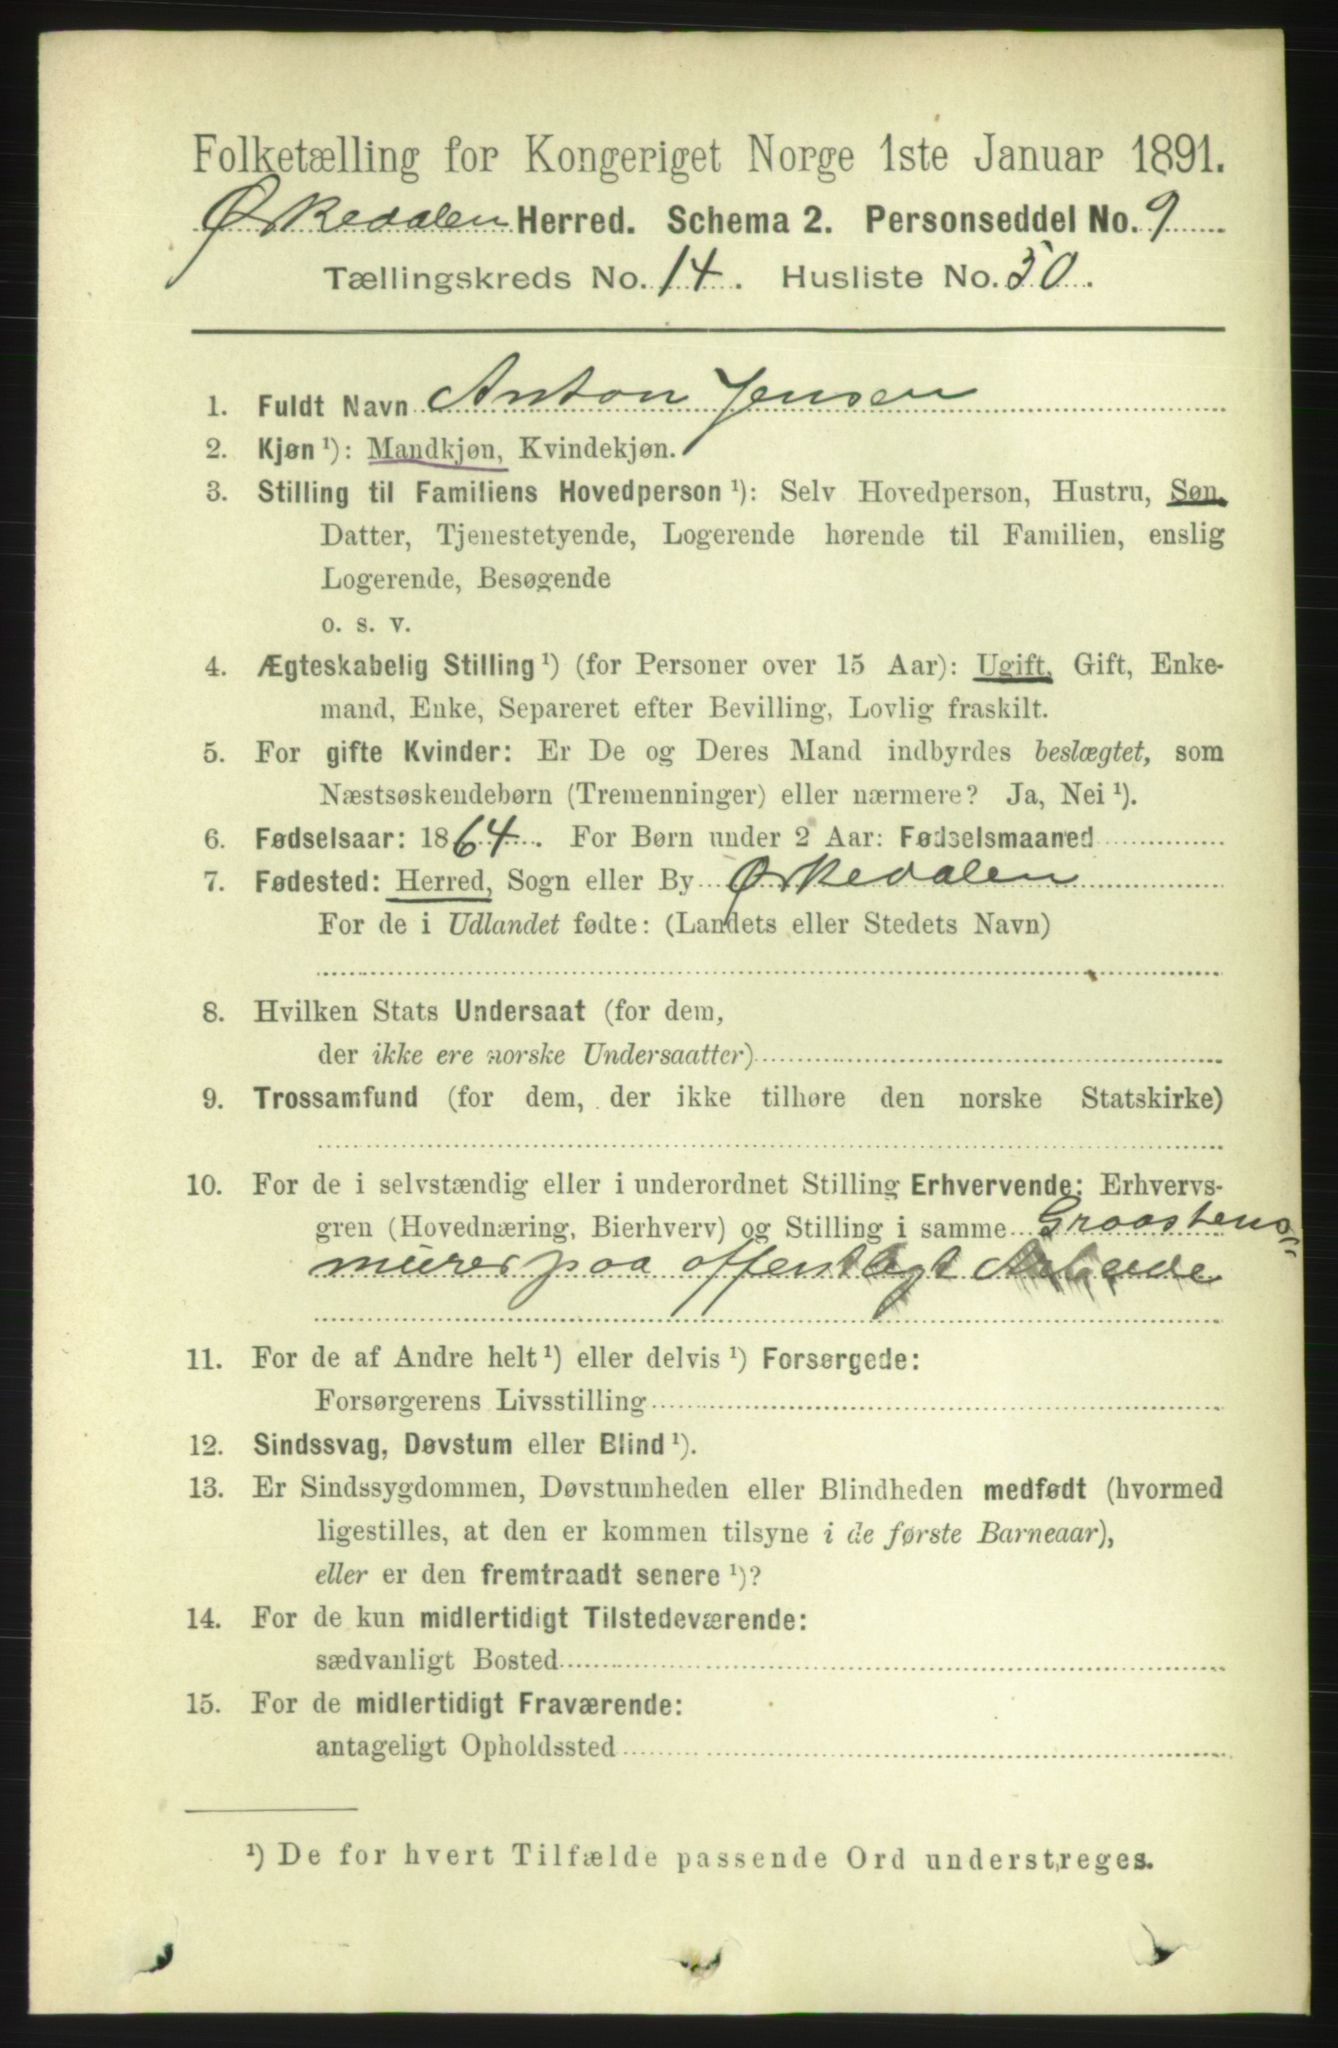 Folketælling for Kongeriget Norge 1ste Januar 1891.
Ørkedalen Herred. Schema 2. Personseddel No. 9
Tællingskreds No. 14. Husliste No. 50.
1. Fuldt Navn Anton Jensen
2. Kjøn ¹): Mandkjøn, Kvindekjøn.
3. Stilling til Familiens Hovedperson ¹): Selv Hovedperson, Hustru, Søn,
Datter, Tjenestetyende, Logerende hørende til Familien, enslig
Logerende, Besøgende
o. s. v.
4. Ægteskabelig Stilling ¹) (for Personer over 15 Aar): Ugift, Gift, Enke-
mand, Enke, Separeret efter Bevilling, Lovlig fraskilt.
5. For gifte Kvinder: Er De og Deres Mand indbyrdes beslægtet, som
Næstsøskendebørn (Tremenninger) eller nærmere? Ja, Nei ¹).
6. Fødselsaar: 1864. For Børn under 2 Aar: Fødselsmaaned
7. Fødested: Herred, Sogn eller By Ørkedalen
For de i Udlandet fødte: (Landets eller Stedets Navn)
8. Hvilken Stats Undersaat (for dem,
der ikke ere norske Undersaatter)
9. Trossamfund (for dem, der ikke tilhøre den norske Statskirke)
10. For de i selvstændig eller i underordnet Stilling Erhvervende: Erhvervs-
gren (Hovednæring, Bierhverv) og Stilling i samme Graastens-
murer paa offentligt Arbeide
11. For de af Andre helt ¹) eller delvis ¹) Forsørgede:
Forsørgerens Livsstilling
12. Sindssvag, Døvstum eller Blind ¹).
13. Er Sindssygdommen, Døvstumheden eller Blindheden medfødt (hvormed
ligestilles, at den er kommen tilsyne i de første Barneaar),
eller er den fremtraadt senere ¹)?
14. For de kun midlertidigt Tilstedeværende:
sædvanligt Bosted
15. For de midlertidigt Fraværende:
antageligt Opholdssted
¹) De for hvert Tilfælde passende Ord understreges.